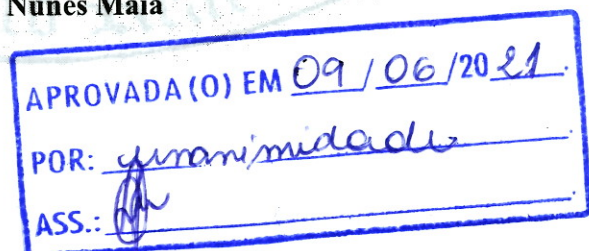 Nunes Maia
APROVADA (O) EM 09 / 06 /20 21.
POR: unanimidade
ASS.: